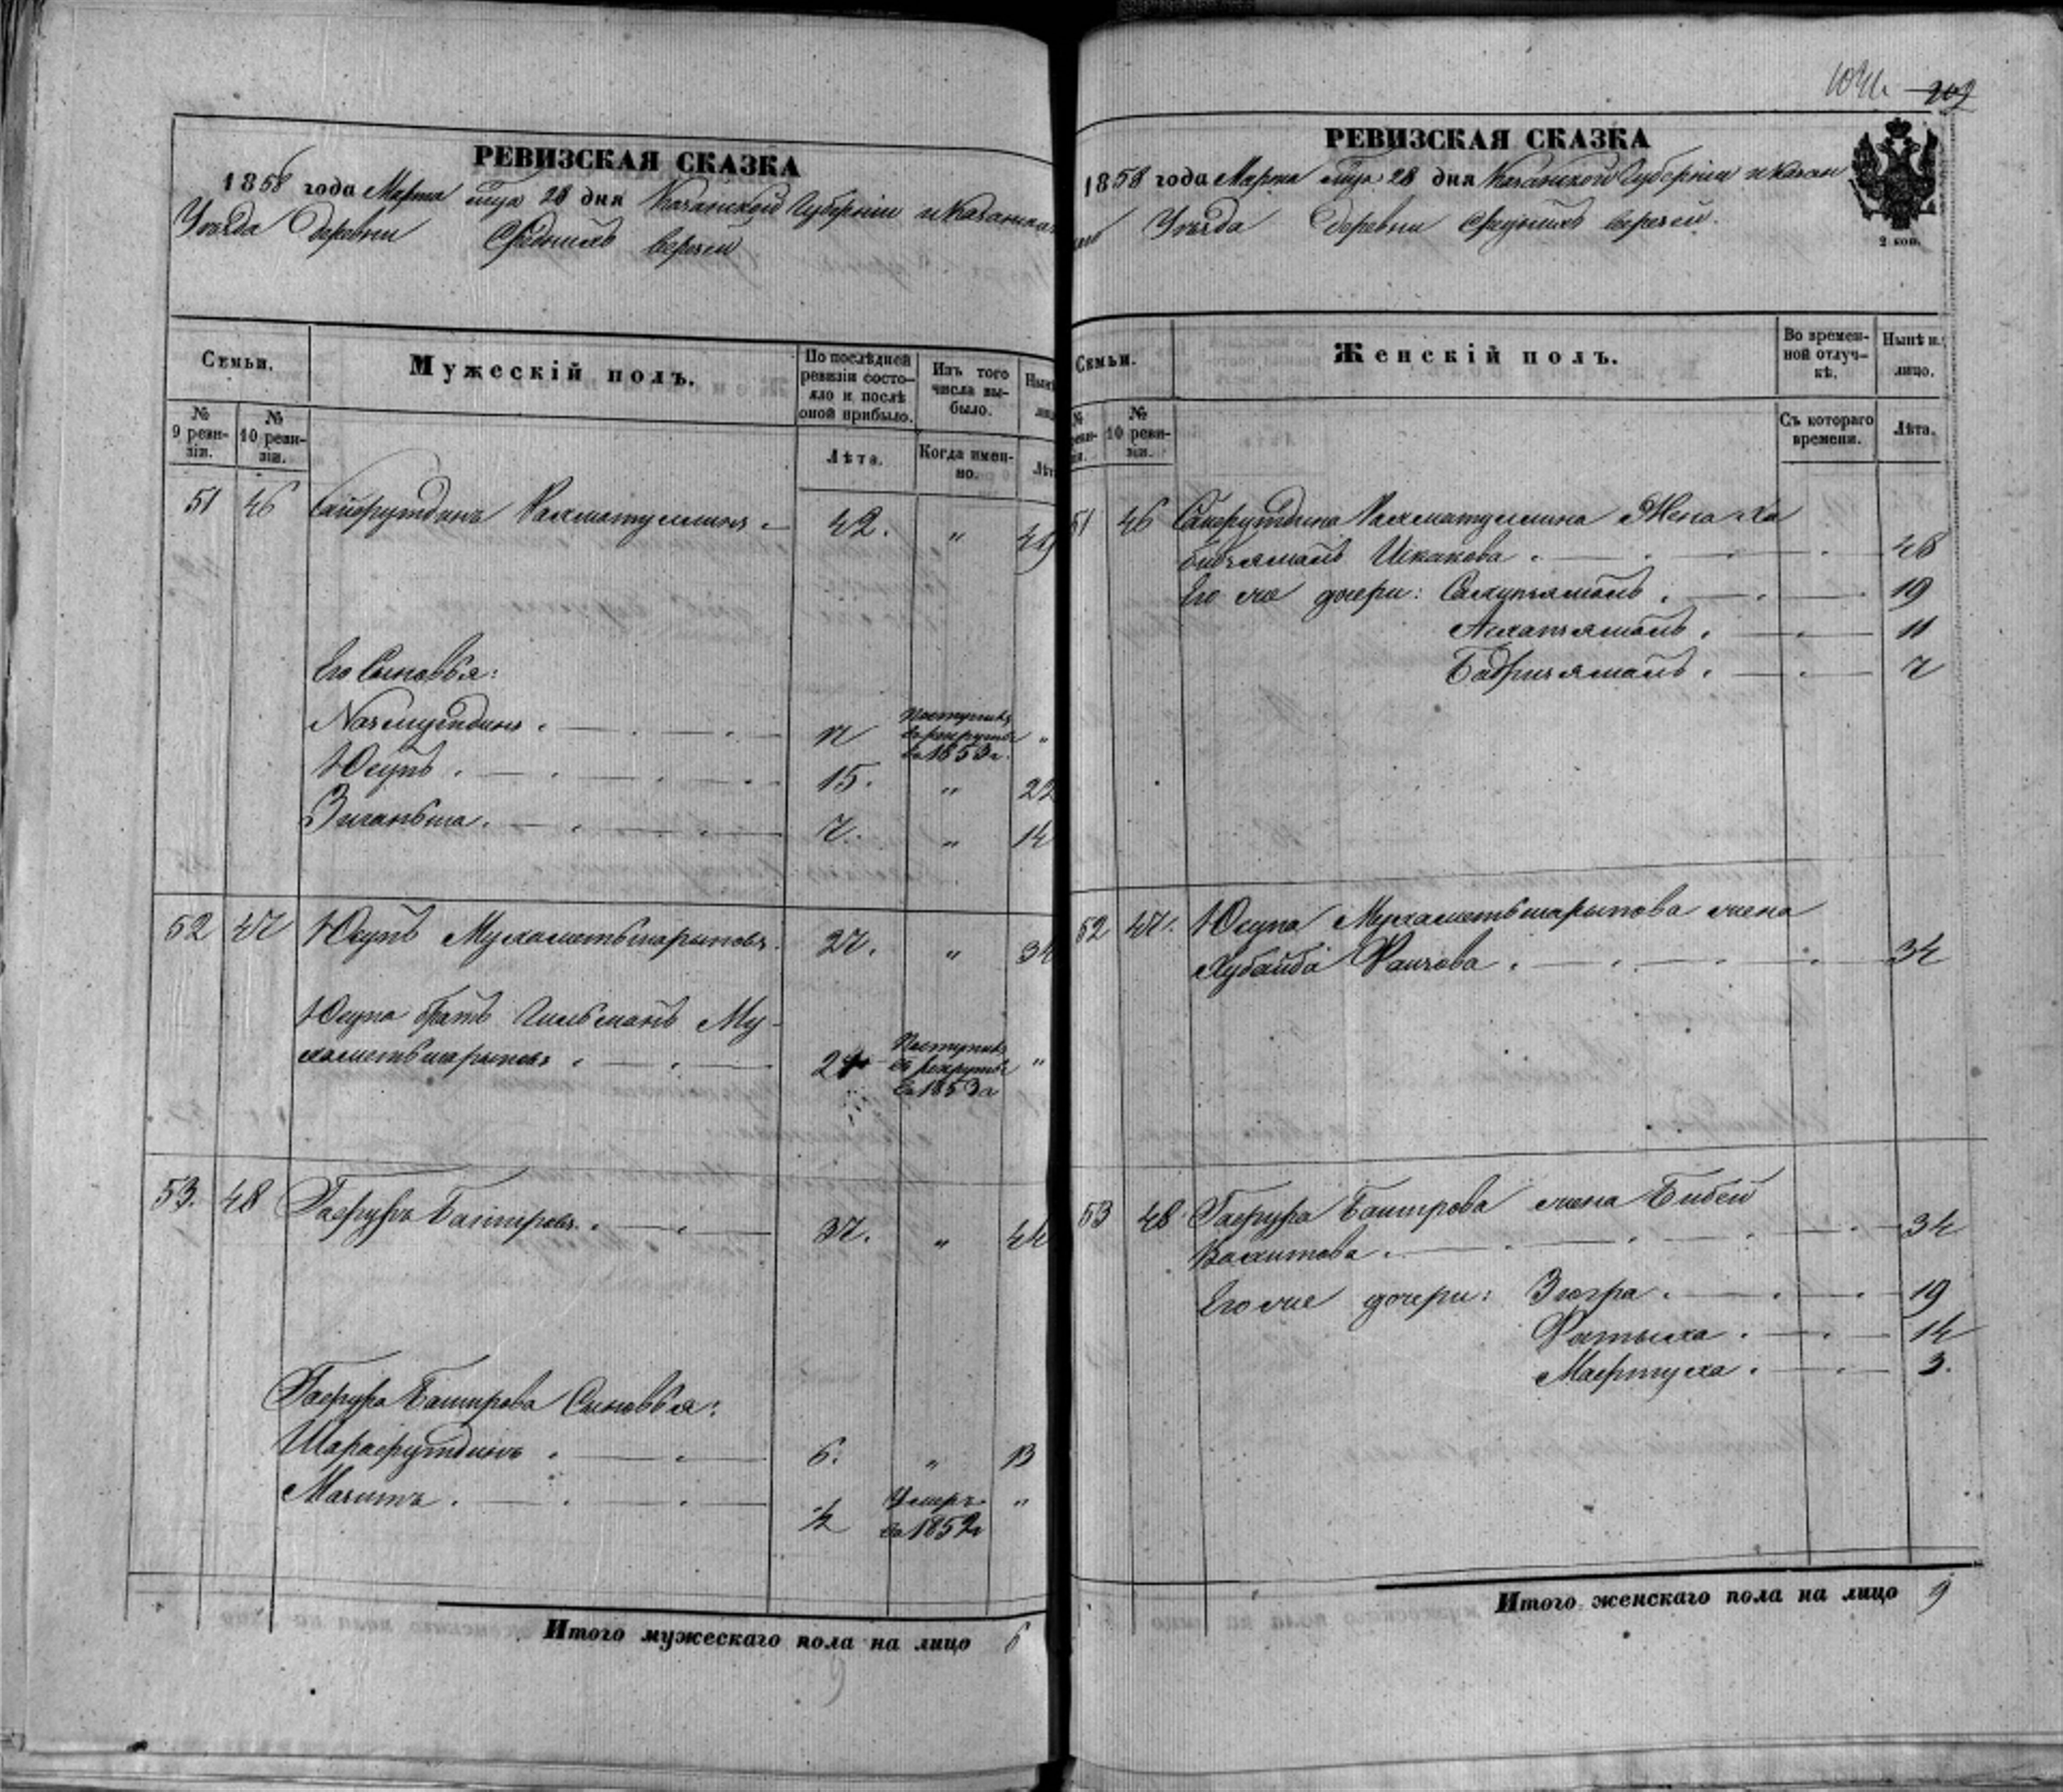 РЕВИЗСКАЯ СКАЗКА
1858 года Марта мца 28 дня Казанской Губерніи и Казанска
Уѣзда Деревни Среднихъ Верезей
Семьи.
Мужескій полъ.
По послѣдней ревизіи состо-
яло и послѣ
оной прибыло.
Изъ того
числа вы-
было.
№
9 реви-
зіи.
№
10 реви-
зіи.
Лѣта.
Когда имен-
но.
51 46 Сайфутдинъ Рахматуллинъ 42. „ 49
Его Сыновья:
Назмутдинъ Поступилъ
въ рекруты
въ 1853 г. „
Юсупъ 15. „ 22
Зиганьша 7. „ 14
52 47 Юсупъ Мухаметьшарыповъ 27. „ 34
Юсупа братъ Гильманъ Му-
хаметьшарыповъ Поступилъ
въ рекруты
въ 1853 г „
53. 48 Гафуръ Башировъ 37. „ 44
Гафура Баширова Сыновья:
Шарафутдинъ 6. „ 13
Мазитъ ½ Умеръ
въ 1852 г „
Итого мужескаго пола на лицо 6
202
РЕВИЗСКАЯ СКАЗКА
1858 года Марта мца 28 дня Казанской Губерніи и Казан
скаго Уѣзда Деревни Среднихъ Верезей.
2 коп.
Семьи.
Женскій полъ.
Во времен-
ной отлуч-
кѣ.
Нынѣ н.
лицо.
№
10 реви-
зіи.
Съ котораго
времени.
Лѣта.
51 46 Сайфутдина Рахматуллина Жена Ха
бибзямалъ Искакова 48
Его же дочери: Сахипзямалъ 19
Асхапзямалъ 11
Бадризямалъ 7
52 47. Юсупа Мухаметьшарыпова жена
Хубайба Фаизова 34
53 48 Гафура Баширова жена Бибей
Вахитова 34
Его же дочери: Зюгра 19
Фатыха 14
Мафтуха 3.
Итого женскаго пола на лицо 9